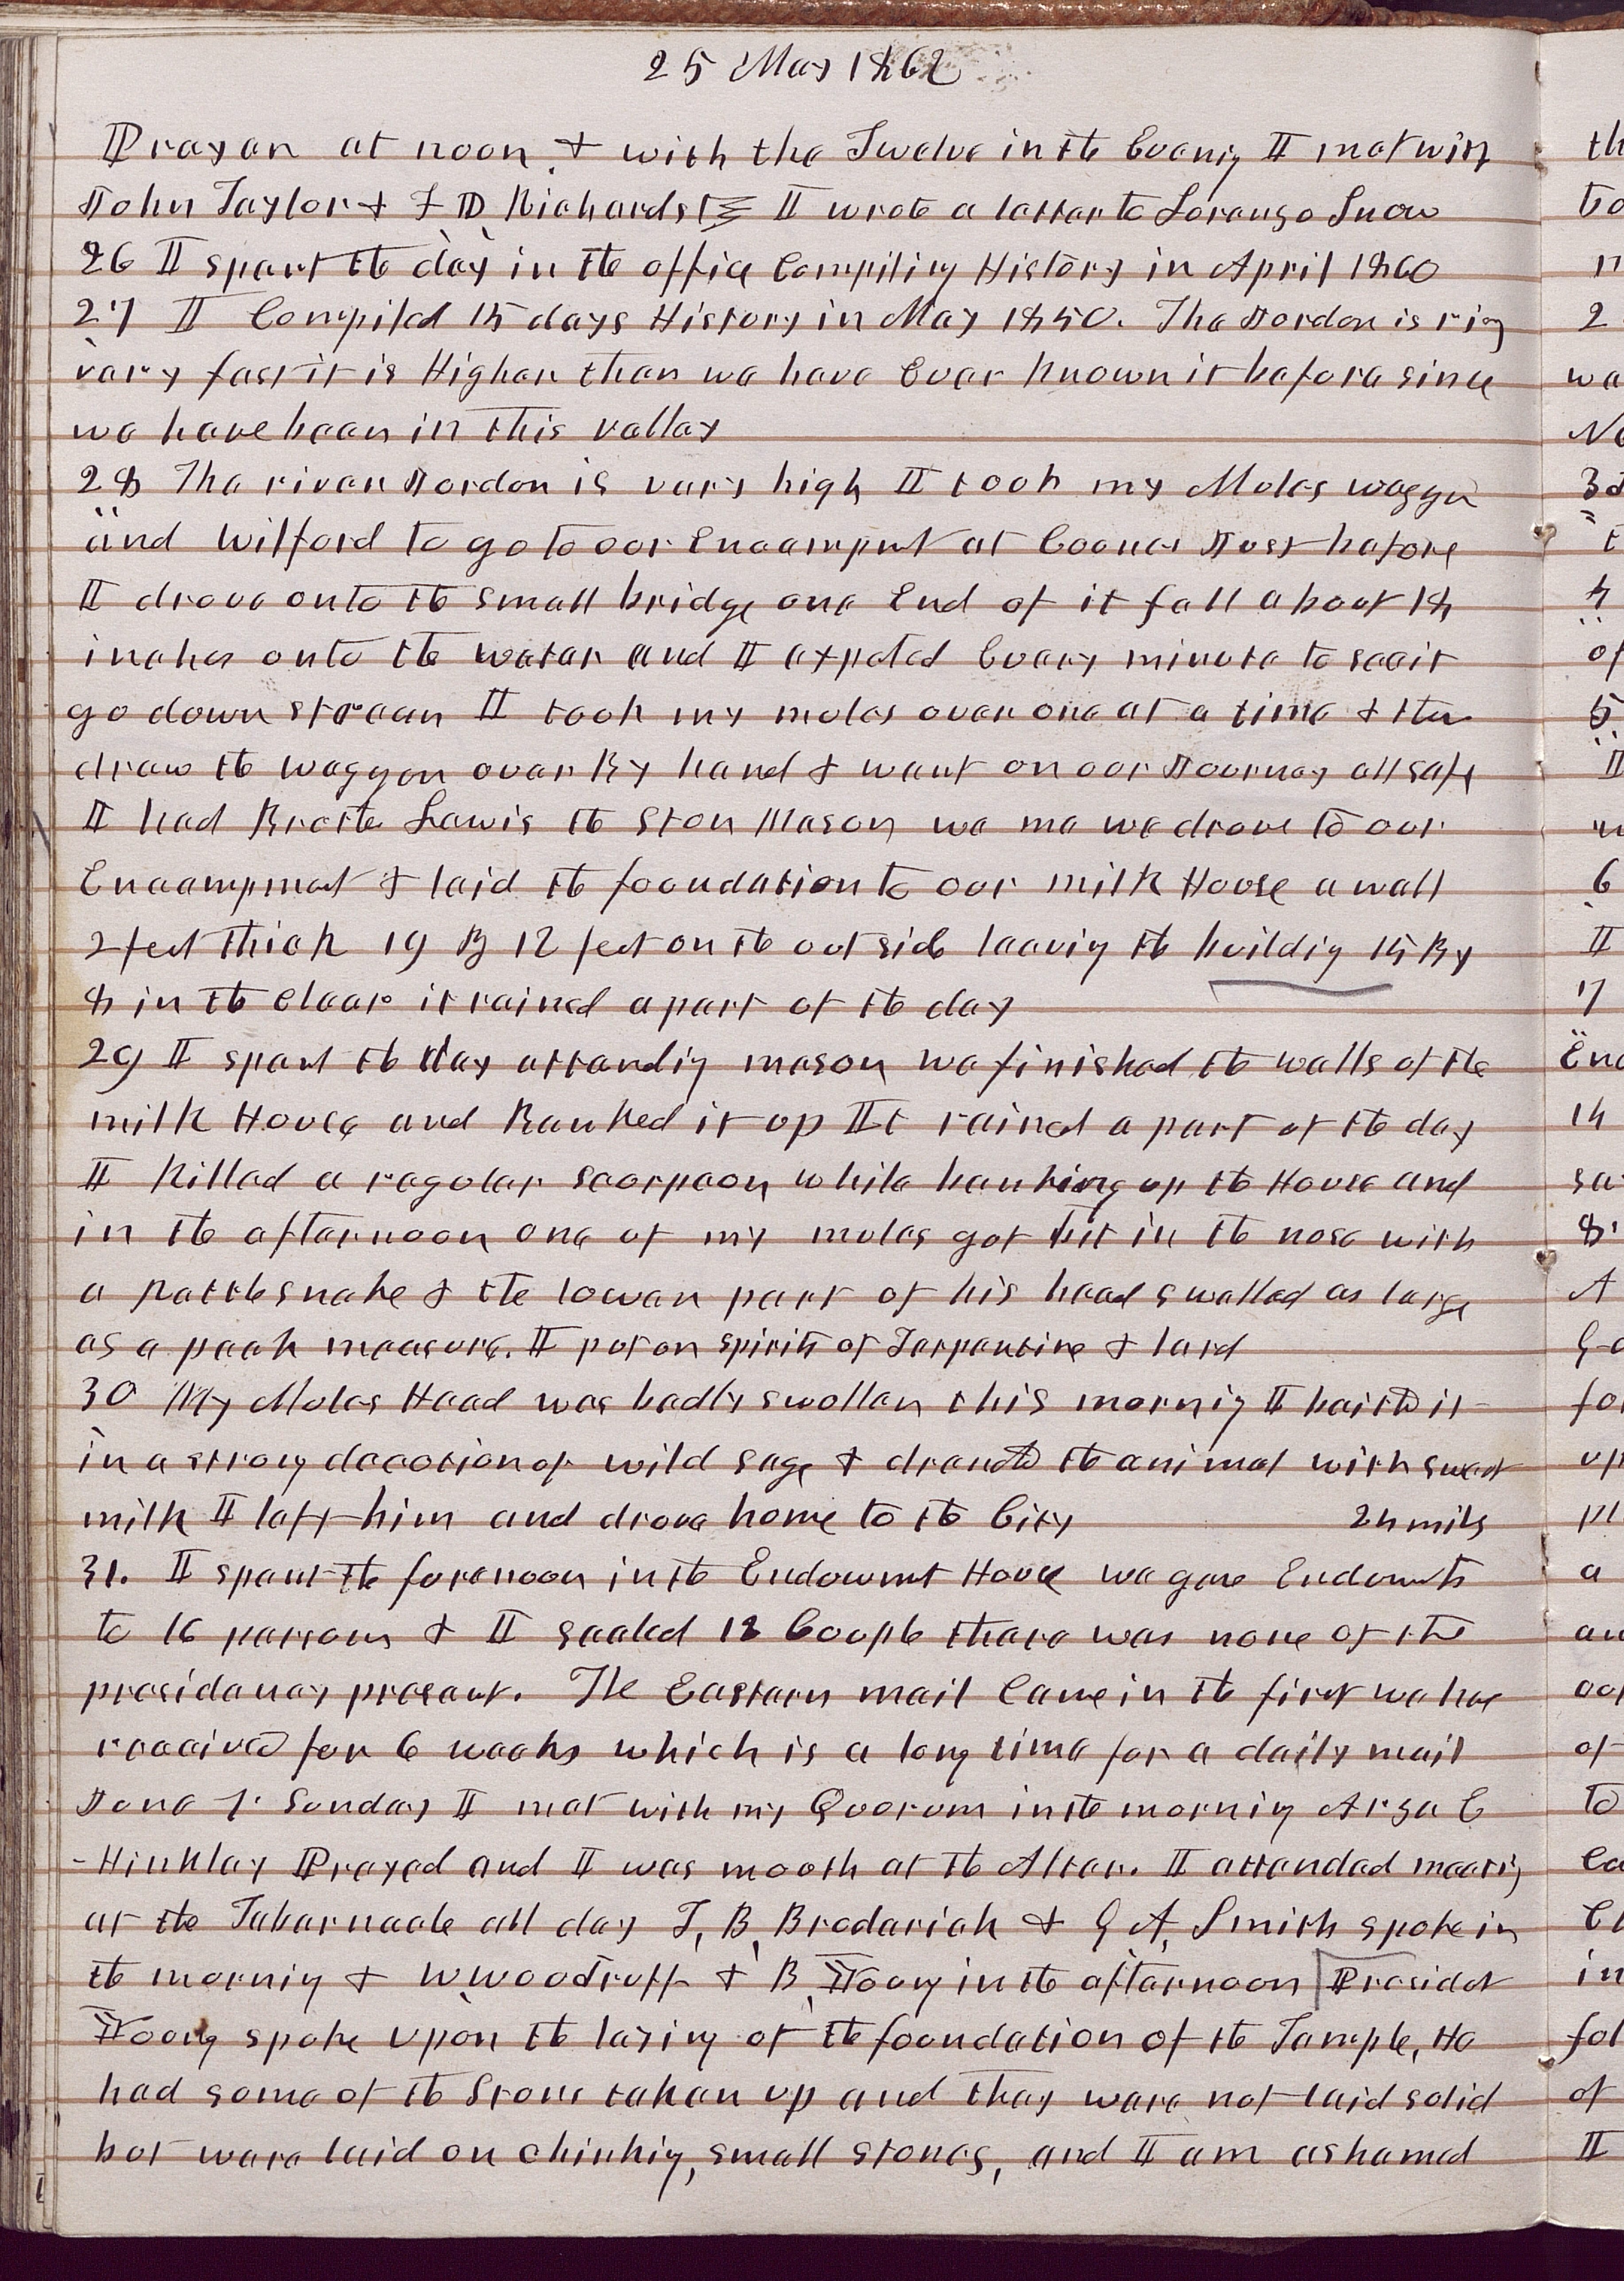 25 May 1862
Prayer at noon & with the Twelve in the Evenig I met with
John Taylor & F D Richards I wrote a letter to Lorenzo Snow
26 I spent the day in the office Compiling History in April 1860
27 I Compiled 15 days History in May 1850. The Jordon is risig
very fast it is Higher than we have Ever Known it before since
we have been in this valley
28 The river Jordon is very high I took my Mules waggon
and Wilford to go to our Encampmt at Coones Just before
I drove onto the small bridge one End of it fell about 18
inches onto the water and I expeted Evary minute to see it
go down stream I took my mules over one at a time & then
drew the waggon over By hand & went on our Journey all safe
I had Brother Lewis the Ston Mason we me we drove to our
Encampment & laid the foundation to our milk House a wall
2 feet thick 19 By 12 feet on the out side leavig the buildig 15 By
8 in the clear it rained a part of the day
29 I spent the day attendig mason we finished the walls of the
milk House and Banked it up It rained a part of the day
I Killed a regular scorpeon while banking up the House and
in the afternoon one of my mules got bit in the nose with
a Rattlesnake & the lower part of his head swelled as large
as a peck measure. I put on spirits of Terpentine & lard
30 My Mules Head was badly swollen this mornig I baithed it
in a strong decotion of wild sage & drenched the animal with sweet
milk I left him and drove home to the City 24 mils
31. I spent the forenoon in the Endowmt House we gave Endowmts
to 16 persons & I sealed 12 Couple there was none of the
presidency present. The Eastern mail Came in the first we have
received for 6 weeks which is a long time for a daily mail
June 1. Sunday I met with my Quorum in the mornig Arza E
- Hinkley Prayed and I was mouth at the Altar. I attended meetig
at the Tabernacle all day T, B, Broderick & G A, Smith spoke in
the mornig & W Woodruff & B, Young in the afternoon Presidet
Young spoke upon the layig of the foundation of the Temple, He
had some of the Stone taken up and they were not laid solid
but were laid on chinkig, small stones, and I am ashamed